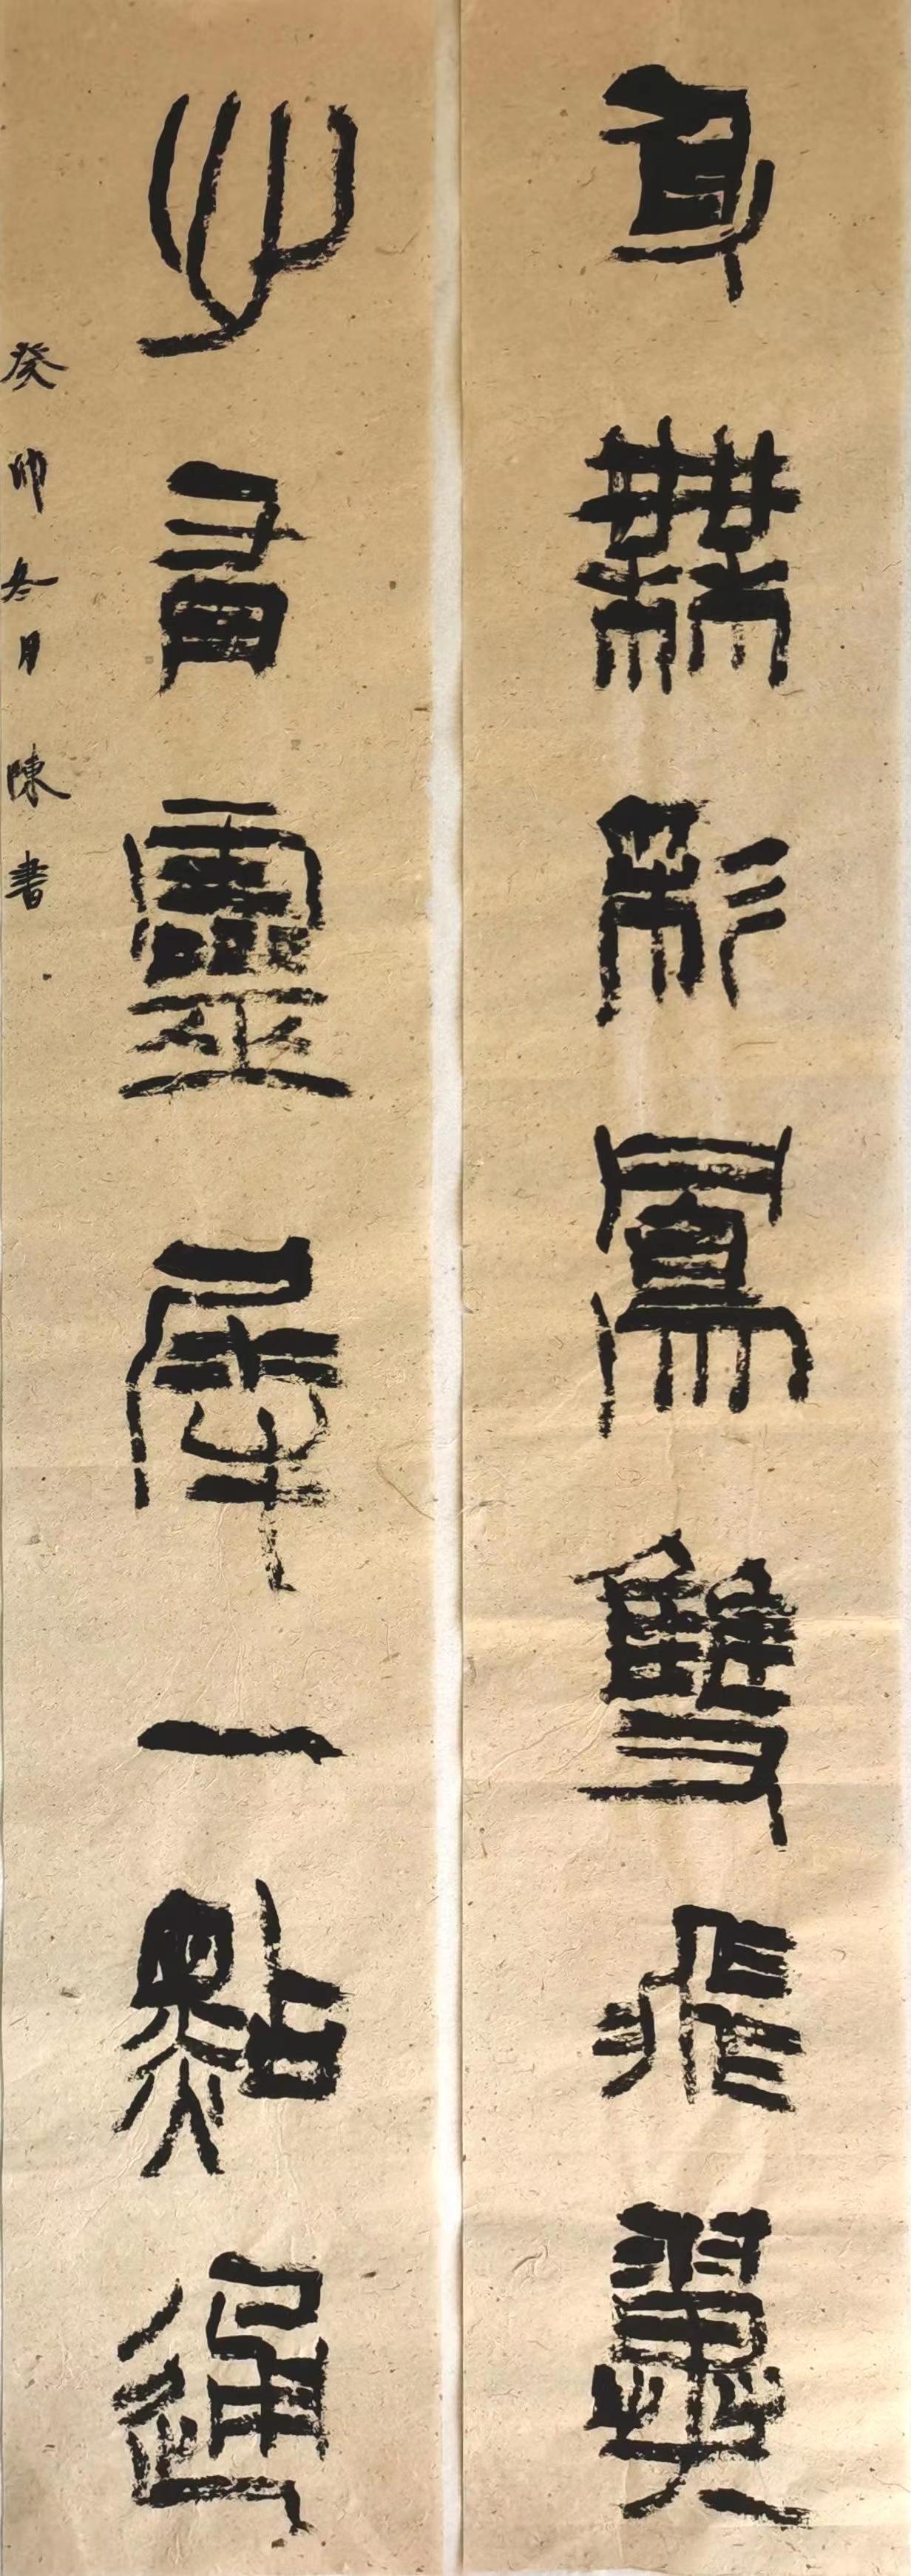 身無彩鳳雙飛翼
心有靈犀一點通
癸卯冬月陳書